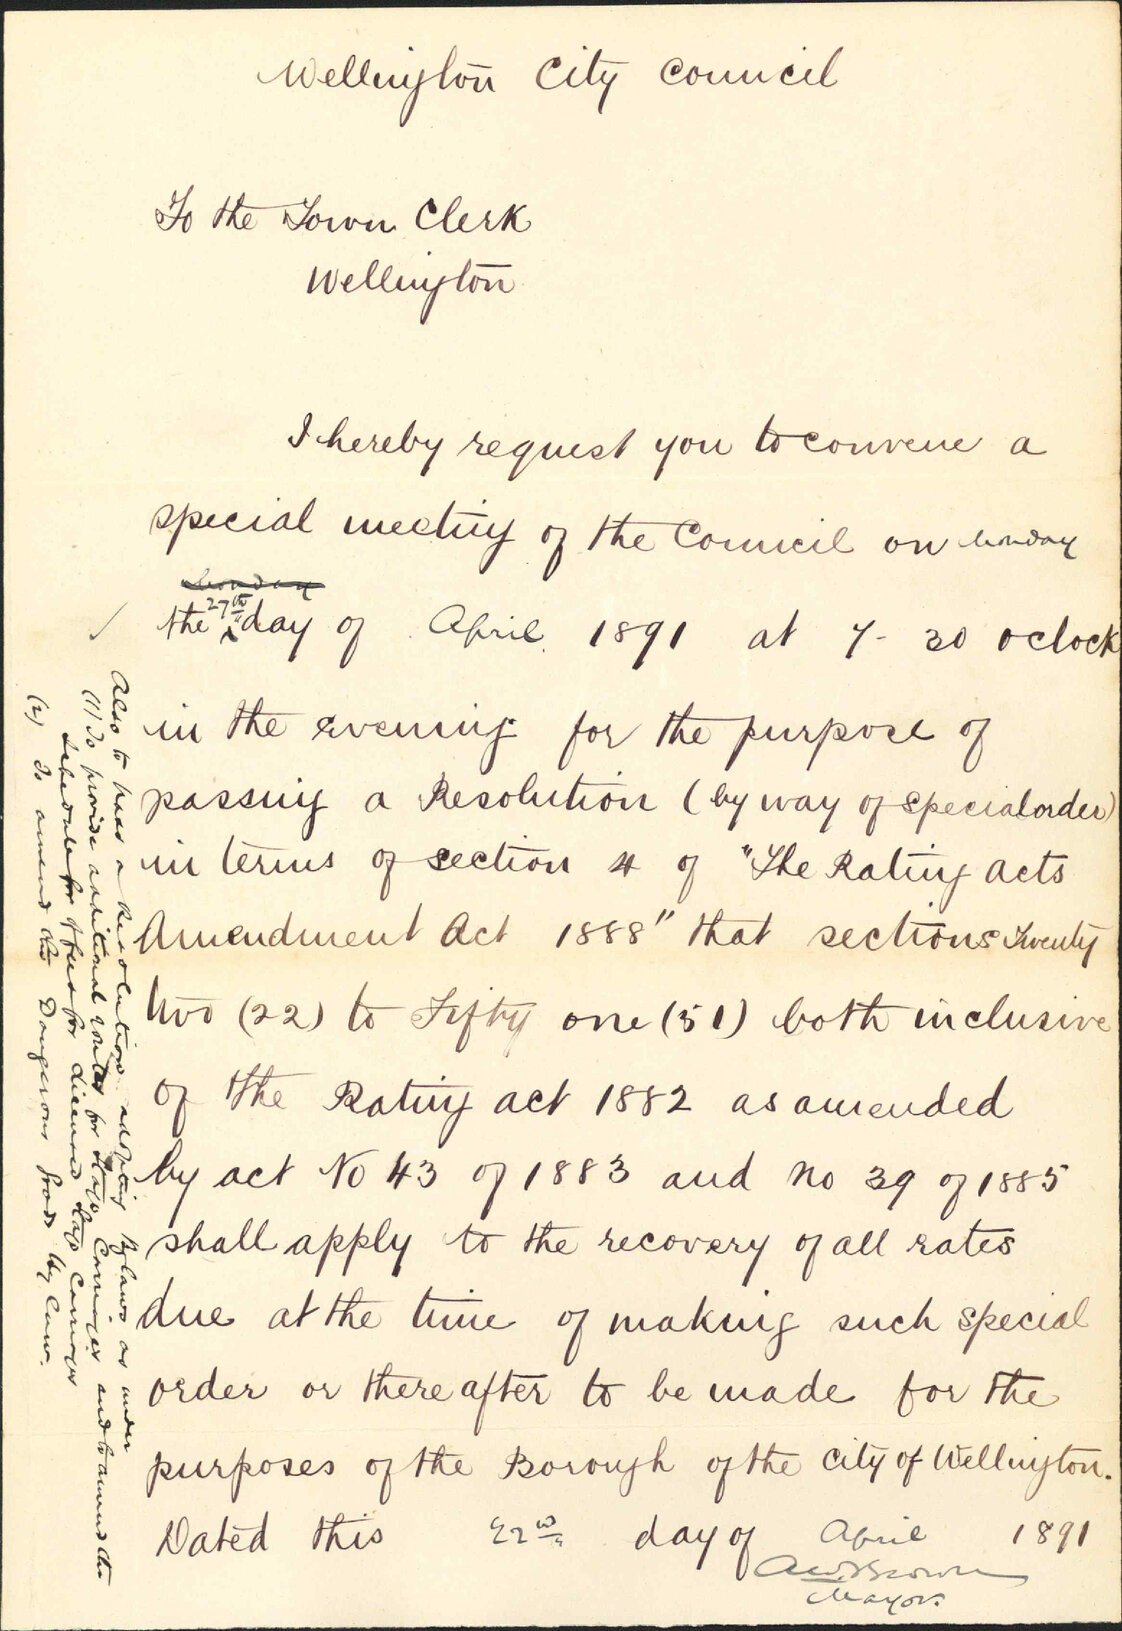 Wellington City Council
To the Town Clerk
Wellington
I hereby request you to convene a
special meeting of the Council on Monday
Monday
the 27th day of April 1891 at 7-30 oclock
in the evening for the purpose of
passing a Resolution (by way of special order)
in terms of section 4 of "The Rating acts
Amendment Act 1888" that sections Twenty
two (22) to Fifty one (51) both inclusive
of the Rating act 1882 as amended
by act No 43 of 1883 and No 39 of 1885
shall apply to the recovery of all rates
due at the time of making such special
order or thereafter to be made for the
purposes of the Borough of the City of Wellington.
Dated this 22nd day of April 1891
AW Brown
Mayor.
Also to pass a Resolution adopting Bylaws as under
(1) To provide additional routes for Stage Carriages and to amend the
Schedule of fees for licensed Stage Carriages
(2) To amend the Dangerous Goods By Law.